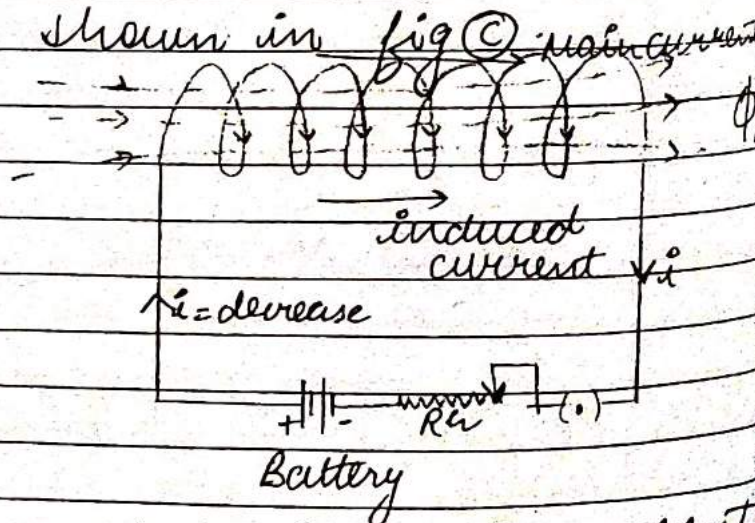 shown in fig (C) main current
ϕ
induced
current
i
i = decrease
+ - Rh (.)
Battery